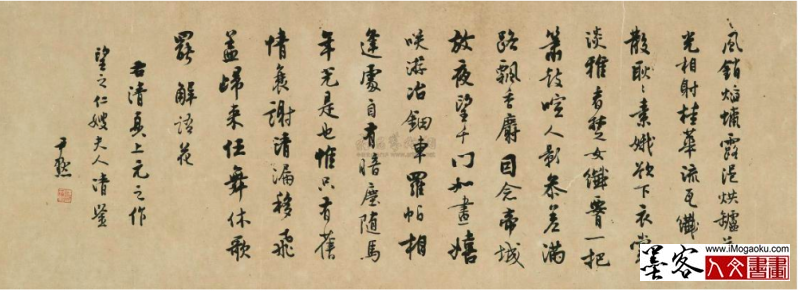 風銷焰蠟露浥烘罏
光相射桂華流瓦纖
散耿々素娥欲下衣裳
淡雅看楚女纖腰一把
簫鼓喧人影參差滿
路飄香麝因念帝城
放夜望千門如晝嬉
咲游冶鈿車羅帕相
逢處自有暗塵隨馬
年光是也惟只有舊
情衰謝清漏移飛
蓋歸來任舞休歌
罷 解語花
右清真上元之作
望之仁嫂夫人清鑒
尹默
www.iMogaoku.com
墨客
人文書畫